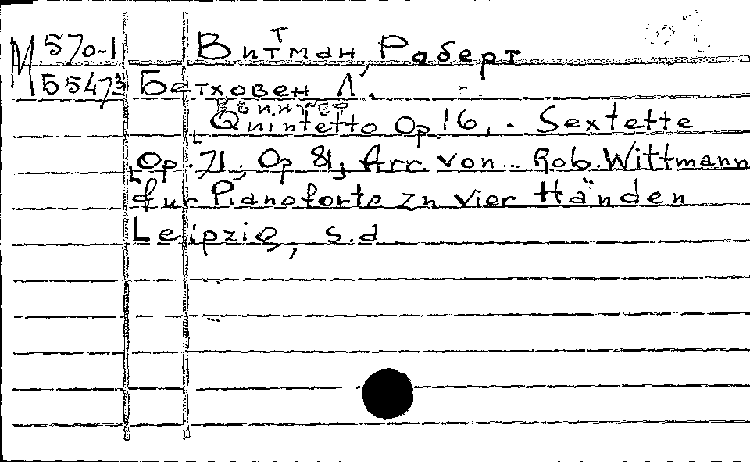 М 570-1 Витман, Роберт
15547з Бетховен Л.
Квинтет
Quintetto Op 16, . Sextette
Op. 71, Op 81, Arr. von Rob. Wittmann
fur Pianoforte zu vier Händen
Leipzig, s.d